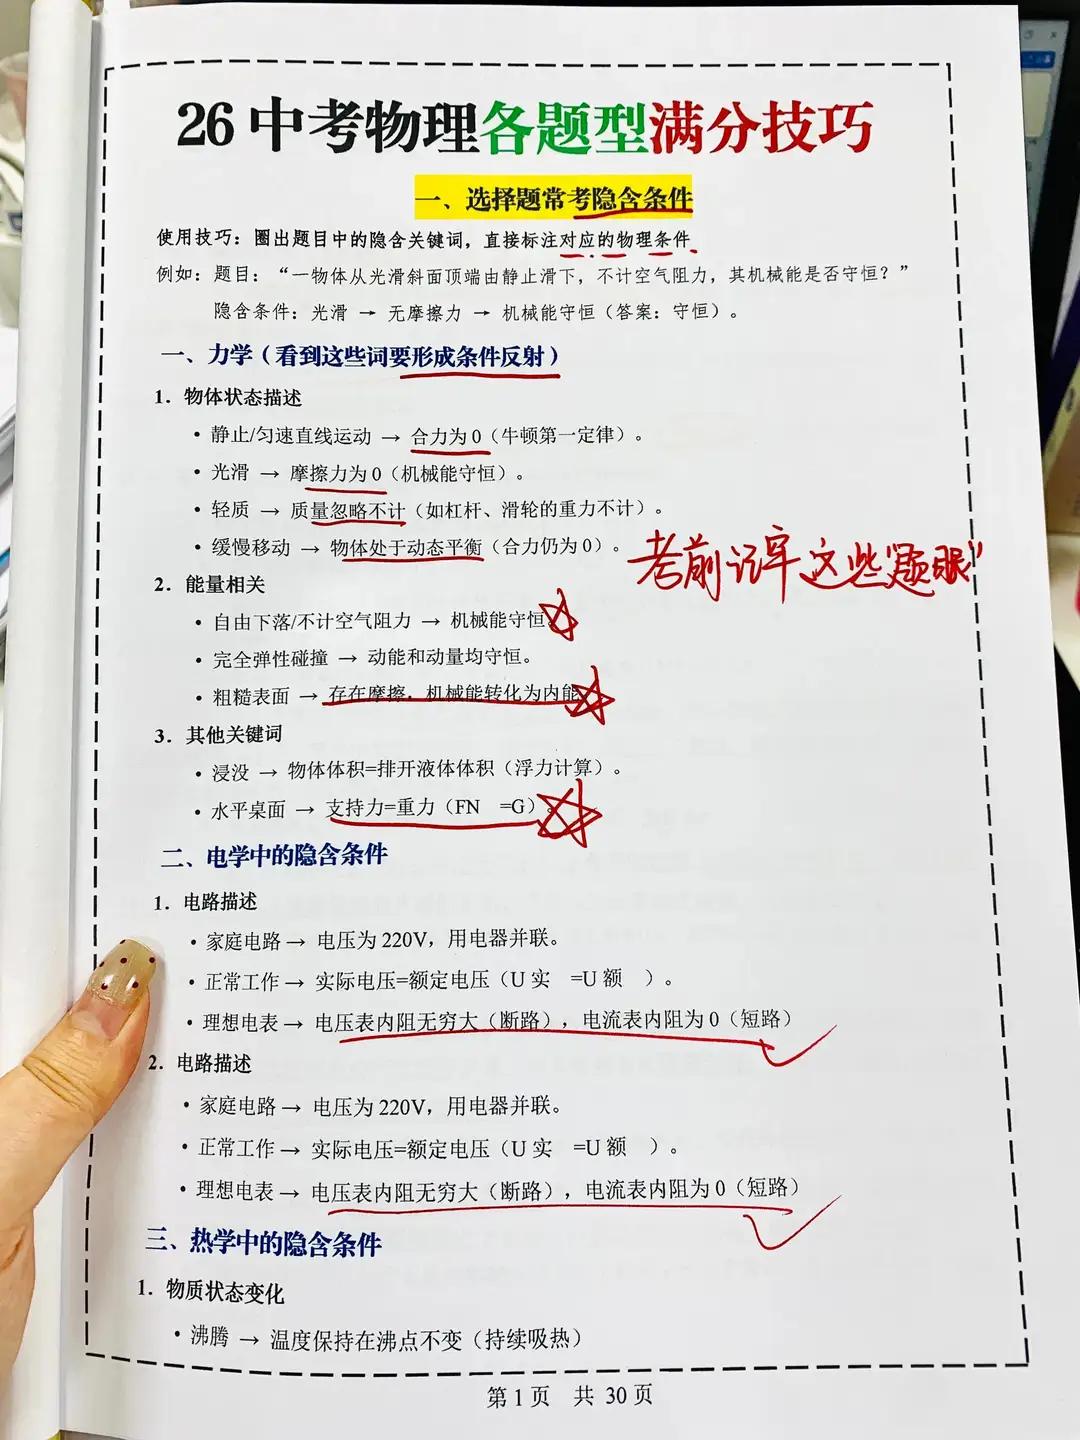 26中考物理各题型满分技巧
一、选择题常考隐含条件
使用技巧：圈出题目中的隐含关键词，直接标注对应的物理条件.
例如：题目：“一物体从光滑斜面顶端由静止滑下，不计空气阻力，其机械能是否守恒？”
隐含条件：光滑 → 无摩擦力 → 机械能守恒（答案：守恒）。
一、力学（看到这些词要形成条件反射）
1. 物体状态描述
• 静止/匀速直线运动 → 合力为 0（牛顿第一定律）。
• 光滑 → 摩擦力为 0（机械能守恒）。
• 轻质 → 质量忽略不计（如杠杆、滑轮的重力不计）。
• 缓慢移动 → 物体处于动态平衡（合力仍为 0）。
考前记牢这些"题眼"
2. 能量相关
• 自由下落/不计空气阻力 → 机械能守恒
• 完全弹性碰撞 → 动能和动量均守恒。
• 粗糙表面 → 存在摩擦，机械能转化为内能
3. 其他关键词
• 浸没 → 物体体积=排开液体体积（浮力计算）。
• 水平桌面 → 支持力=重力（FN =G）。
二、电学中的隐含条件
1. 电路描述
• 家庭电路 → 电压为 220V，用电器并联。
• 正常工作 → 实际电压=额定电压（U 实 =U 额 ）。
• 理想电表 → 电压表内阻无穷大（断路），电流表内阻为 0（短路）
2. 电路描述
• 家庭电路 → 电压为 220V，用电器并联。
• 正常工作 → 实际电压=额定电压（U 实 =U 额 ）。
• 理想电表 → 电压表内阻无穷大（断路），电流表内阻为 0（短路）
三、热学中的隐含条件
1. 物质状态变化
• 沸腾 → 温度保持在沸点不变（持续吸热）
第 1 页 共 30 页